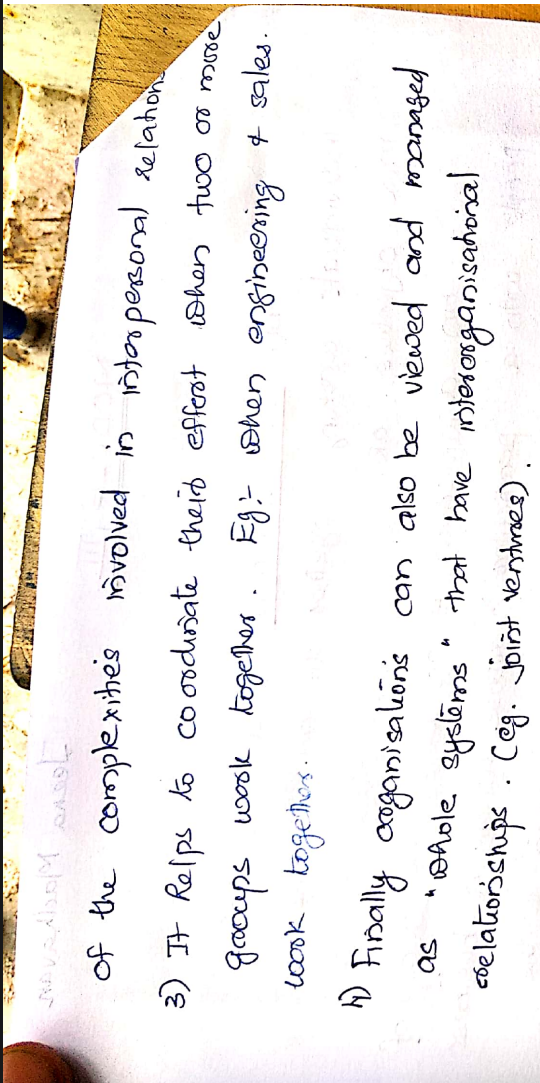 of the complexities involved in interpersonal relations
3) It helps to coordinate their effort when two or more
groups work together. Eg:- when engineering & sales.
work together.
4) Finally organisations can also be viewed and managed
as "whole systems" that have interorganisational
relationships. (eg. joint ventures).